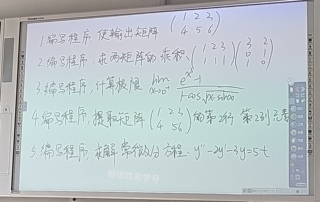 1 编写程序,使输出矩阵 (1 2 3
4 5 6)
2 编写程序,求两矩阵的乘积 (1 2 3
1 1 1) (3 2
0 1
1 0)
3 编写程序,计算极限 lim x→0
4 编写程序,提取矩阵 (1 2 3
4 5 6) 的第2行 第2列元素
5 编写程序 求解常微分方程 y''-2y'-3y=5t